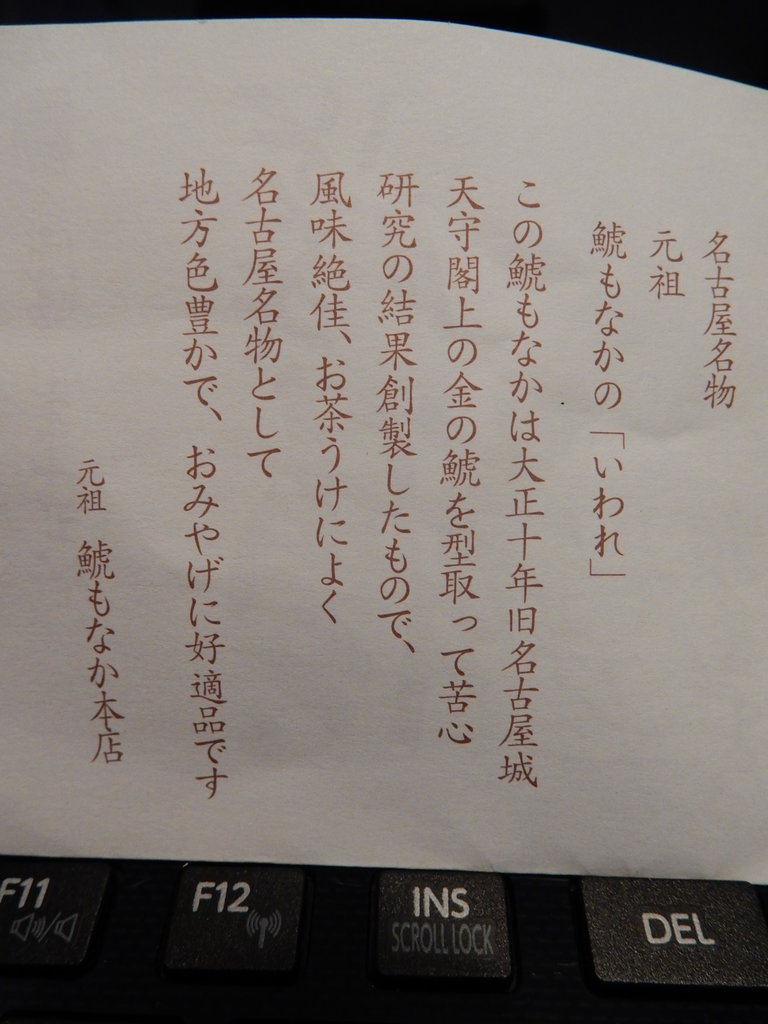 名古屋名物
元祖
鯱もなかの「いわれ」
この鯱もなかは大正十年旧名古屋城
天守閣上の金の鯱を型取って苦心
研究の結果創製したもので、
風味絶佳、お茶うけによく
名古屋名物として
地方色豊かで、おみやげに好適品です
元祖 鯱もなか本店
F11
F12
INS
SCROLL LOCK
DEL